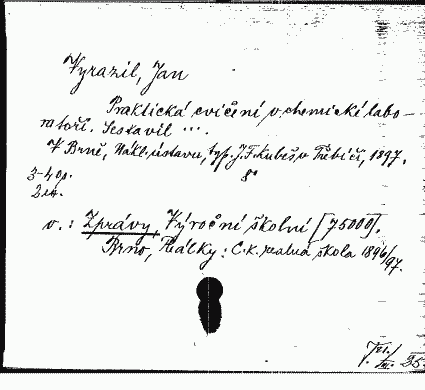 Vyrazil, Jan
Praktická cvičení v chemické labo-
ratoři. Sestavil ....
V Brně, Nákl. ústavu, typ. J.F. Kubeš v Třebíči, 1897.
3-40 p. 8°
v.: Zprávy, Výroční školní [75000].
Brno, Reálky: C.k. reálná škola 1896/97.